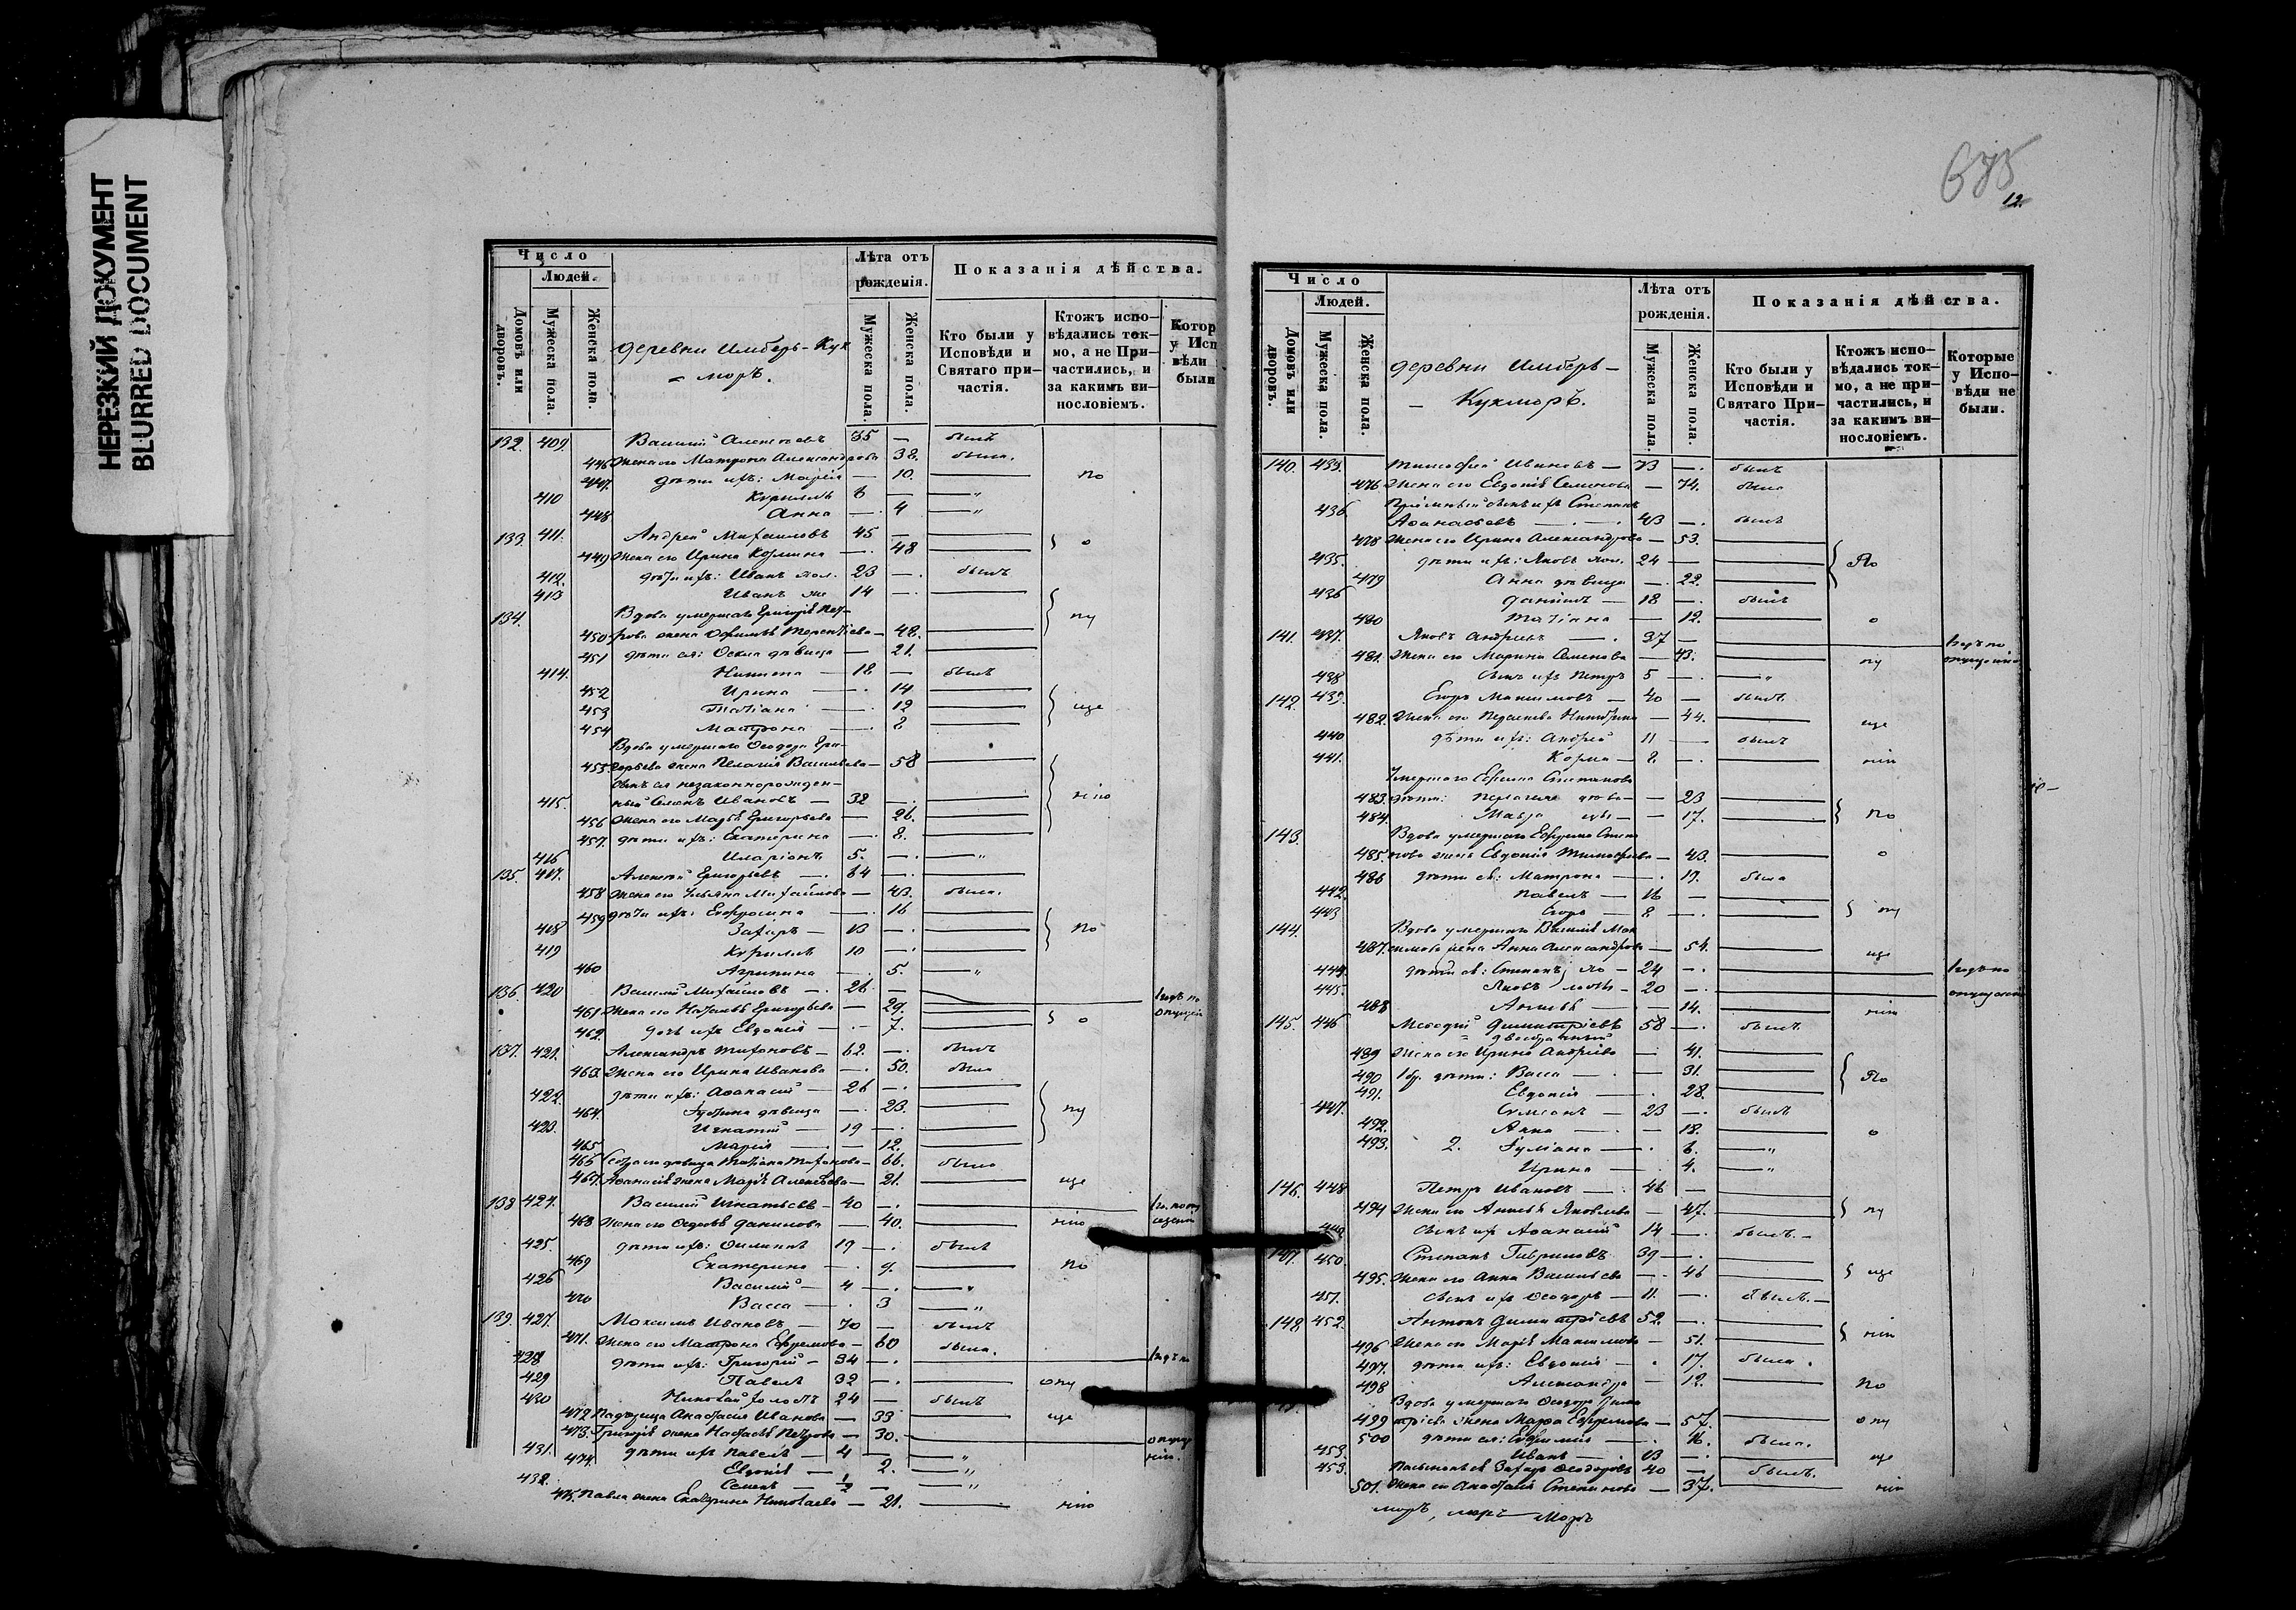 НЕРЕЗКИЙ ДОКУМЕНТ
BLURRED DOCUMENT
Число
Людей.
Домовъ или дворовъ.
Мужеска пола.
Женска пола.
деревни Имберь-Кук
=моръ.
Лѣта отъ рожденія.
Мужеска пола.
Женска пола.
Показанія дѣйства.
Кто были у Исповѣди и Святаго причастія.
Ктожъ исповѣдались токмо, а не Причастились, и за какимъ винословіемъ.
Котор
у Исп
вѣди
были
132. 409. Василій Алексѣевъ 35 — былъ
446 Жена его Матрона Александрова 38. была.
447. дѣти ихъ: Марія — 10. по
410 Кирилъ 6 — "
448 Анна — 4 "
133. 411. Андрей Михаиловъ 45 — о
449 Жена его Ирина Козмина — 48
412. дѣти ихъ: Иванъ 23 — былъ
413 Иванъ же 14 —
134. Вдова умершаго Григорія Пет-
450 рова жена Ефимія Терентіева — 48. пу
451 дѣти ея: Оекла дѣвица — 21.
414. Никита — 18 — былъ
452 Ирина — 14
453 Татіана — 12 ще
454 Матрона — 8
Вдова умершаго Ѳеодора Гри-
455 горьева жена Пелагія Васильева — 58
сынъ ея незаконнорожден-
415. ный Семенъ Ивановъ — 32 нію
456 Жена его Марѳа Григорьева — 26.
457. дѣти ихъ: Екатерина — 8.
416 Иларіонъ 5. — "
135. 417. Алексѣй Григорьевъ — 64 —
458 Жена его Ульяна Михаилова — 43. была.
459 дѣти ихъ: Евфросинія — 16
418 Захаръ — 13 — по
419 Кирилъ 10 —
460 Агрипина — 5. "
136. 420 Василій Михаиловъ — 26 —
461 Жена его Наталья Григорьева — 29.
462. дочь ихъ Евдокія — 7. о
137. 421. Александръ Тихоновъ — 62. — былъ
463. Жена его Ирина Иванова — 50. была
422. дѣти ихъ: Аѳанасій — 26 —
464. дѣвица — 23. пу
423. Игнатій — 19 —
465 Марія — 12.
466 Сестра его дѣвица Татіана Тихонова — 66. была
467. Аѳанасія жена Марія Алексѣева — 21. ще
138 424. Василій Игнатьевъ — 40 —
468 Жена его Ѳедосья Данилова — 40. нію
425. дѣти ихъ: Филиппъ 19 — былъ
469 Екатерина — 9. по
426 Василій — 4 — "
470 Васса — 3 "
139. 427. Максимъ Ивановъ — 70 — былъ
471. Жена его Матрона Ефремова — 60 была.
428 дѣти ихъ: Григорій — 34 —
429 Павелъ 32 — опу
430 Николай холостъ 24 — былъ
472 Падчерица Анастасія Иванова — 33 ще
473. Григорія жена Настасья Петрова — 30.
431. дѣти ихъ Павелъ — 4 — "
474. Евдокія — 2. "
432. Семенъ — ½ — "
475. Павла жена Екатерина Николаева — 21. нію
675
12.
Число
Людей.
Домовъ или дворовъ.
Мужеска пола.
Женска пола.
деревни Имберь —
— Кукморъ.
Лѣта отъ рожденія.
Мужеска пола.
Женска пола.
Показанія дѣйства.
Кто были у Исповѣди и Святаго Причастія.
Ктожъ исповѣдались токмо, а не причастились, и за какимъ винословіемъ.
Которые у Исповѣди не были.
140. 433. Тимофей Ивановъ — 73 — былъ
476 Жена его Евдокія Семенова — 74. была
Пріемный сынъ ихъ Степанъ
Аѳанасьевъ — 43 — былъ
478 Жена его Ирина Александрова — 53.
435. дѣти ихъ: Яковъ хол. 24 — По
479 Анна дѣвица — 22.
436 Даніилъ — 18 — былъ
480 Татіана — 12. о
141. 437. Яковъ Андреевъ — 37 —
481. Жена его Марина Семенова — 43. пу
438 Сынъ ихъ Петръ 5 — "
142. 439. Егоръ Максимовъ — 40 — былъ.
482. Жена его — 44. ще
440 дѣти ихъ: Андрей 11 — былъ
441. Козма — 8 — нію
Умершаго Ефима Степанова
483. дѣти: Пелагія — 23
484. Мавра — 17. по
143. Вдова умершаго Ефрема Степа
485. нова жена Евдокія Тимофеева — 43. о
486 дѣти ея: Матрона — 19. была
442. Павелъ — 16 —
443 Егоръ — 8 — пу
144. Вдова умершаго Василія Мак
487. симова жена Анна Александрова — 54. ще
444. дѣти ея: Степанъ — 24 —
445. Яковъ — 20 —
488 Анисья — 14. нію
145. 446 Меѳодій Димитріевъ 58 — былъ.
= двоебрачный
489 Жена его Ирина Андріева — 41.
490 1 бр. дѣти: Васса — 31. По
491. Евдокія — 28.
447. Симеонъ — 23 — былъ
492. Анна — 18. о
493. 2. Іуліана — 6. "
Ирина — 4. "
146. 448 Петръ Ивановъ — 46 —
494 Жена его Анисья Яковлева — 47. пу
449 сынъ ихъ Аѳанасій 14 — былъ. —
147. 450. Степанъ Гавриловъ 39 —
495. Жена его Анна Васильева — 46 ще
451. сынъ ихъ Ѳеодоръ — 11. — былъ. —
148 452. Антонъ Димитріевъ 52. —
496 Жена его Марія Максимова — 51. нію
497. дѣти ихъ: Евдокія — 17. была.
498 Александра — 12. по
Вдова умершаго Ѳеодора Дими
499 тріева жена Марѳа Ефремова — 57. опу
500 дѣти ея: Евфимія — 16. была.
453. Иванъ — 13 — ще
453. Захаръ Ѳеодоровъ 40 — былъ.
501. Жена его Анастасія Степанова — 37. нію
моръ, моръ Моръ